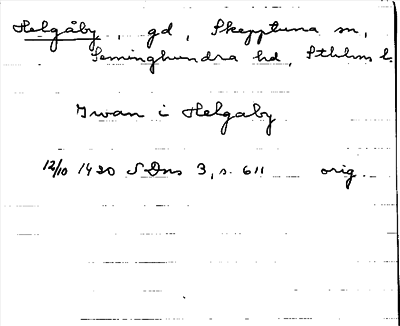 Helgåby, gd, Skepptuna sn,
Seminghundra hd, Sthlms l.
Iwan i Helgaby
12/10 1420 SDns 3, s. 611 orig.